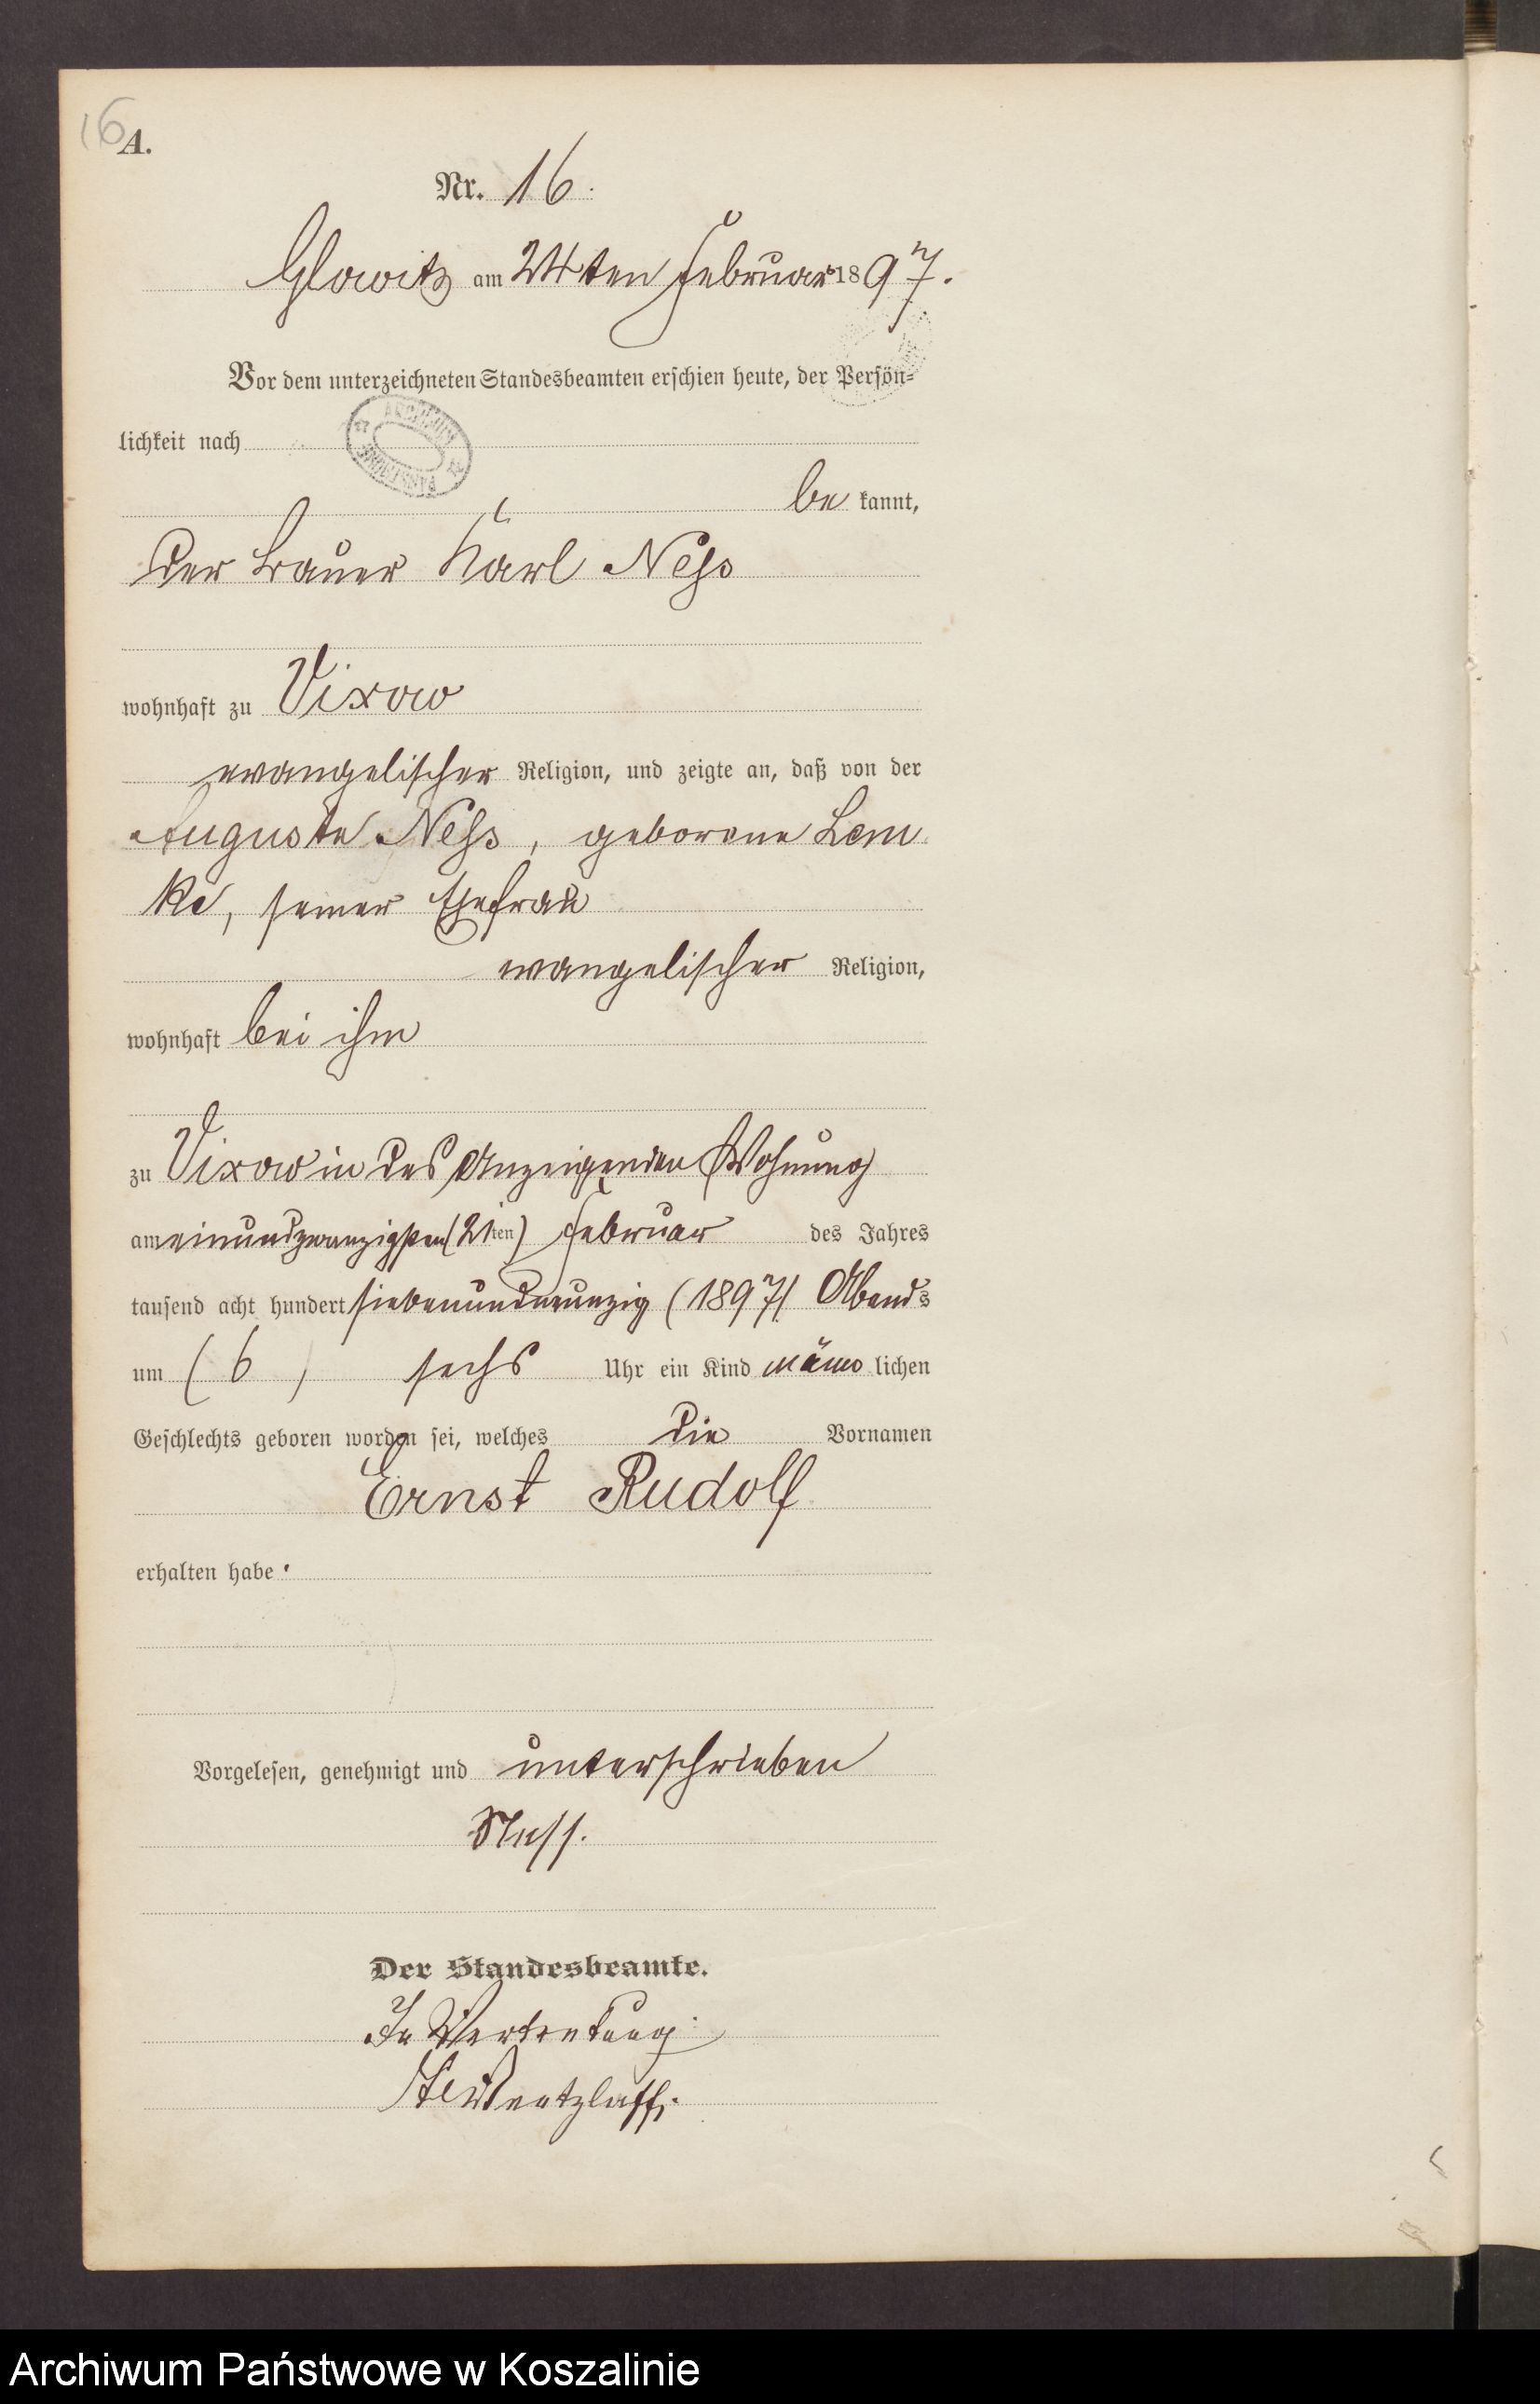 16
A.
Nr. 16.
Glowitz am 24ten Februar 1897.
Vor dem unterzeichneten Standesbeamten erschien heute, der Persön=
lichkeit nach
ARCHIWUM PAŃSTWOWE
be kannt,
der Bauer Karl Neß
wohnhaft zu Vixow
evangelischer Religion, und zeigte an, daß von der
Auguste Neß, geborene Lem
ke, seiner Ehefrau
evangelischer Religion,
wohnhaft bei ihm
zu Vixow in des Anzeigenden Wohnung
am einundzwanzigsten (21ten) Februar des Jahres
tausend acht hundert siebenundneunzig (1897) Abends
um (6) sechs Uhr ein Kind männ lichen
Geschlechts geboren worden sei, welches die Vornamen
Ernst Rudolf
erhalten habe.
Vorgelesen, genehmigt und unterschrieben
Ness.
Der Standesbeamte.
In Vertretung:
Wentzlaff.
Archiwum Państwowe w Koszalinie